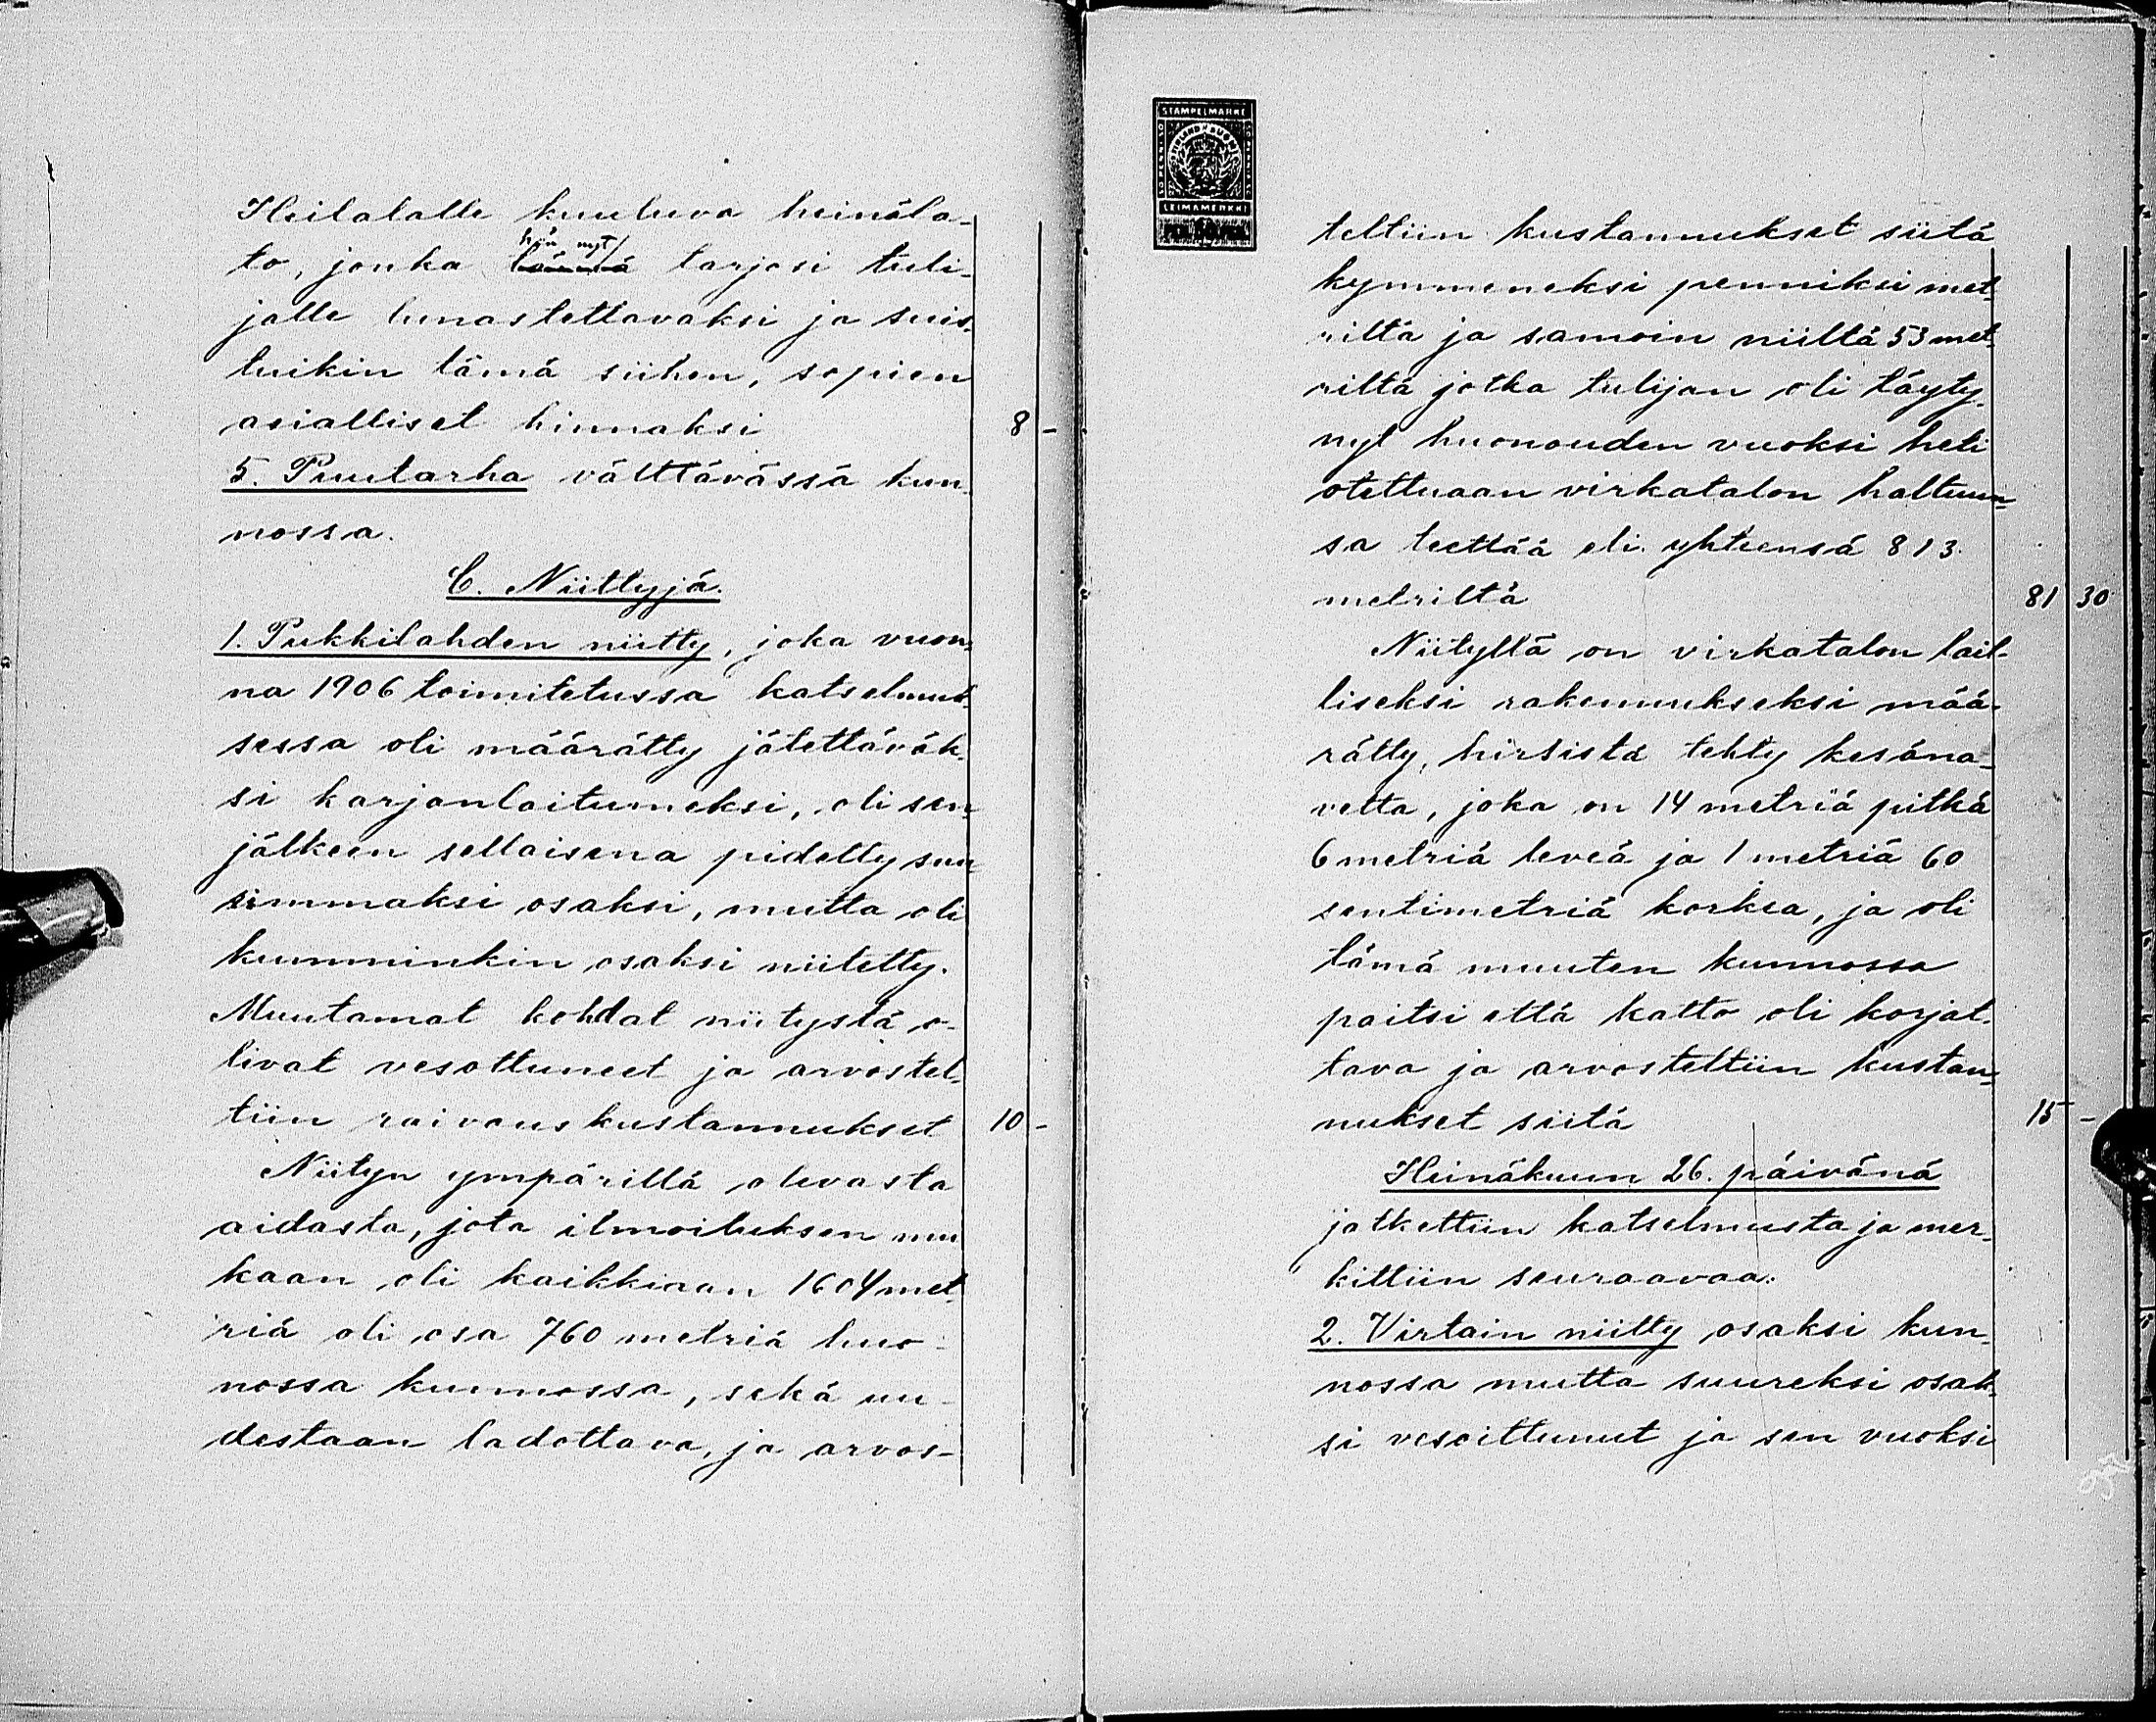 Heilalalle kuuluva heinäla-
to, jonka hän nyt tarjosi tuli-
jalle lunastettavaksi ja suis-
tuikin tämä siihen, sopien
asialliset hinnaksi 8 -
5. Puutarha välttävässä kun-
nossa.
C. Niittyjä.
1. Pukkilahden niitty, joka vuon-
na 1906 toimitetussa katselmuk-
sessa oli määrätty jätettäväk-
si karjanlaitumeksi, oli sen
jälkeen sellaisena pidetty suu-
rimmaksi osaksi, mutta oli
kumminkin osaksi niitetty.
Muutamat kohdat niitystä o-
livat vesottuneet ja arvostel-
tiin raivauskustannukset 10 -
Niityn ympärillä olevasta
aidasta, jota ilmoituksen mu
kaan oli kaikkiaan 1604 met-
riä oli osa 760 metriä huo-
nossa kunnossa, sekä uu-
destaan ladottava, ja arvos-
STAMPELMARKE
FINLAND SUOMI
LEIMAMERKKI
teltiin kustannukset siitä
kymmeneksi penniksi met-
riltä ja samoin niiltä 53 met-
riltä jotka tulijan oli täyty-
nyt huonouden vuoksi heti
otettuaan virkatalon haltuun-
sa teettää eli yhteensä 813
metriltä 81 30
Niityllä on virkatalon lail-
liseksi rakennukseksi mää-
rätty, hirsistä tehty kesäna-
vetta, joka on 14 metriä pitkä
6 metriä leveä ja 1 metriä 60
sentimetriä korkea, ja oli
tämä muuten kunnossa
paitsi että katto oli korjat-
tava ja arvosteltiin kustan-
nukset siitä 15 -
Heinäkuun 26. päivänä
jatkettiin katselmusta ja mer-
kittiin seuraavaa:
2. Virtain niitty osaksi kun-
nossa mutta suureksi osak-
si vesoittunut ja sen vuoksi